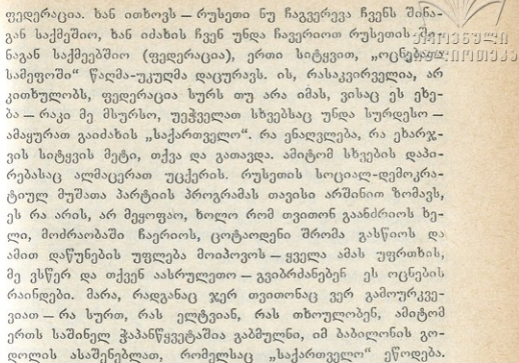 ფედერაცია. ხან ითხოვს — რუსეთი ნუ ჩაგვერევა ჩვენს შინა-
გან საქმეშიო, ხან იძახის ჩვენ უნდა ჩავერიოთ რუსეთის ში-
ნაგან საქმეებშიო (ფედერაცია), ერთი სიტყვით, „ოცნებათა
სამეფოში“ წაღმა-უკუღმა დაცურავს. ის, რასაკვირველია, არ
კითხულობს, ფედერაცია სურს თუ არა იმას, ვისაც ეს ეხე-
ბა — რაკი მე მსურსო, უეჭველათ სხვებსაც უნდა სურდესო —
ამაყურათ გაიძახის „საქართველო“. რა ენაღვლება, რა ეხარჯ-
ვის სიტყვის მეტი, თქვა და გათავდა. ამიტომ სხვების დაპი-
რებასაც ალმაცერათ უცქერის. რუსეთის სოციალ-დემოკრა-
ტიულ მუშათა პარტიის პროგრამას თავისი არშინით ზომავს,
ეს რა არის, არ მეყოფაო, ხოლო რომ თვითონ გაანძრიოს ხე-
ლი, მოძრაობაში ჩაერიოს, ცოტაოდენი შრომა გასწიოს და
ამით დაწუნების უფლება მოიპოვოს — ყველა ამას უფრთხის,
მე ვსწერ და თქვენ აასრულეთო — გვიბრძანებენ ეს ოცნების
რაინდები. მარა, რადგანაც ჯერ თვითონაც ვერ გამოურკვე-
ვიათ — რა სურთ, რას ელტვიან, რას თხოულობენ, ამიტომ
ერთს საშინელ ჭაპანწყვეტაშია გაბმულნი, იმ ბაბილონის გო-
დოლის ასაშენებლათ, რომელსაც „საქართველო“ ეწოდება.
ეროვნული
ბიბლიოთეკა